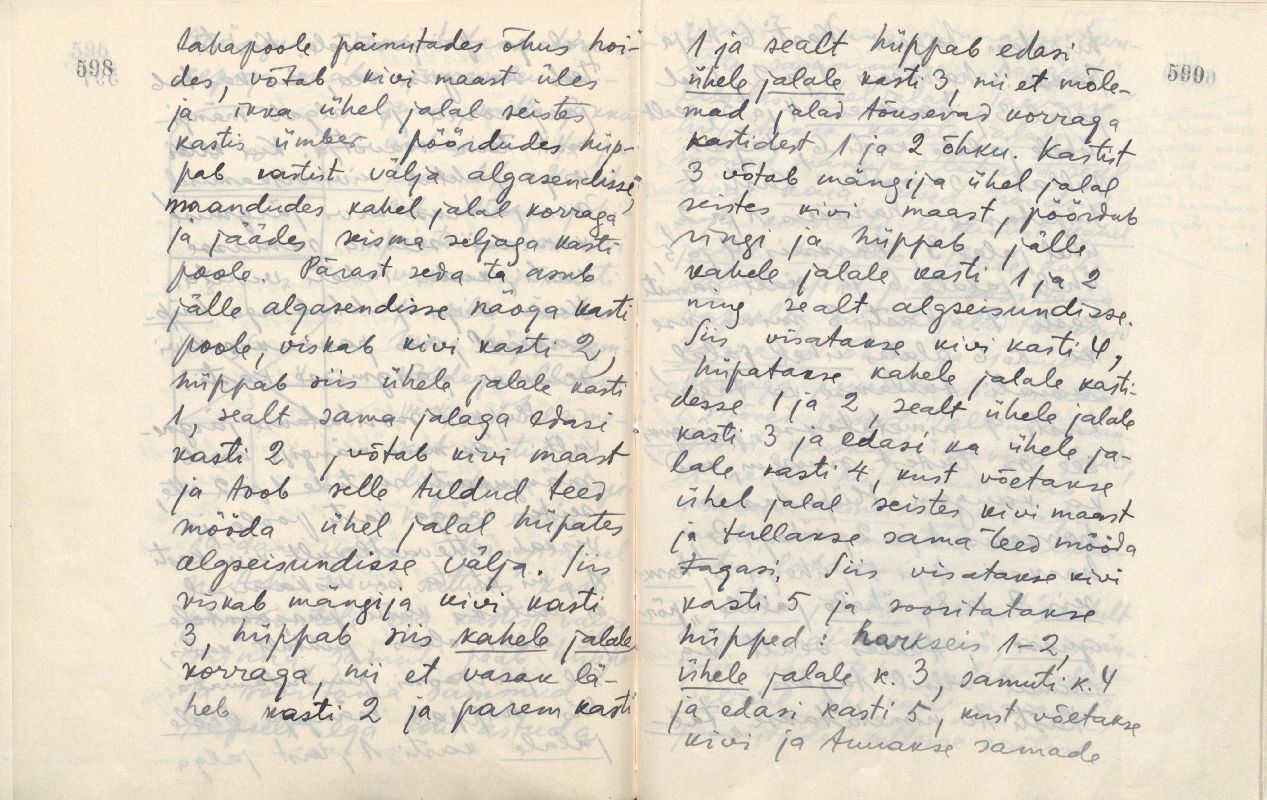 598
tahapoole painutades õhus hoi-
des, võtab kivi maast üles
ja ikka ühel jalal seistes
kastis ümber pöördudes hüp-
pab kastist välja algasendisse,
maandudes kahel jalal korraga
ja jäädes seisma seljaga kasti
poole. Pärast seda ta asub
jälle algasendisse näoga kasti
poole, viskab kivi kasti 2,
hüppab siis ühele jalale kasti
1, sealt sama jalaga edasi
kasti 2, võtab kivi maast
ja toob selle tuldud teed
mööda ühel jalal hüpates
algseisundisse välja. Siis
viskab mängija kivi kasti
3, hüppab siis kahele jalale
korraga, nii et vasak lä-
heb kasti 2 ja parem kasti
599
1 ja sealt hüppab edasi
ühele jalale kasti 3, nii et mõle-
mad jalad tõusevad korraga
kastidest 1 ja 2 õhku. Kastist
3 võtab mängija ühel jalal
seistes kivi maast, pöördub
ringi ja hüppab jälle
kahele jalale kasti 1 ja 2
ning sealt algseisundisse.
Siis visatakse kivi kasti 4,
hüpatakse kahele jalale kasti-
desse 1 ja 2, sealt ühele jalale
kasti 3 ja edasi ka ühele ja-
lale kasti 4, kust võetakse
ühel jalal seistes kivi maast
ja tullakse sama teed mööda
tagasi. Siis visatakse kivi
kasti 5 ja sooritatakse
hüpped: harkseis 1-2,
ühele jalale k. 3, samuti k. 4
ja edasi kasti 5, kust võetakse
kivi ja tuuakse samade